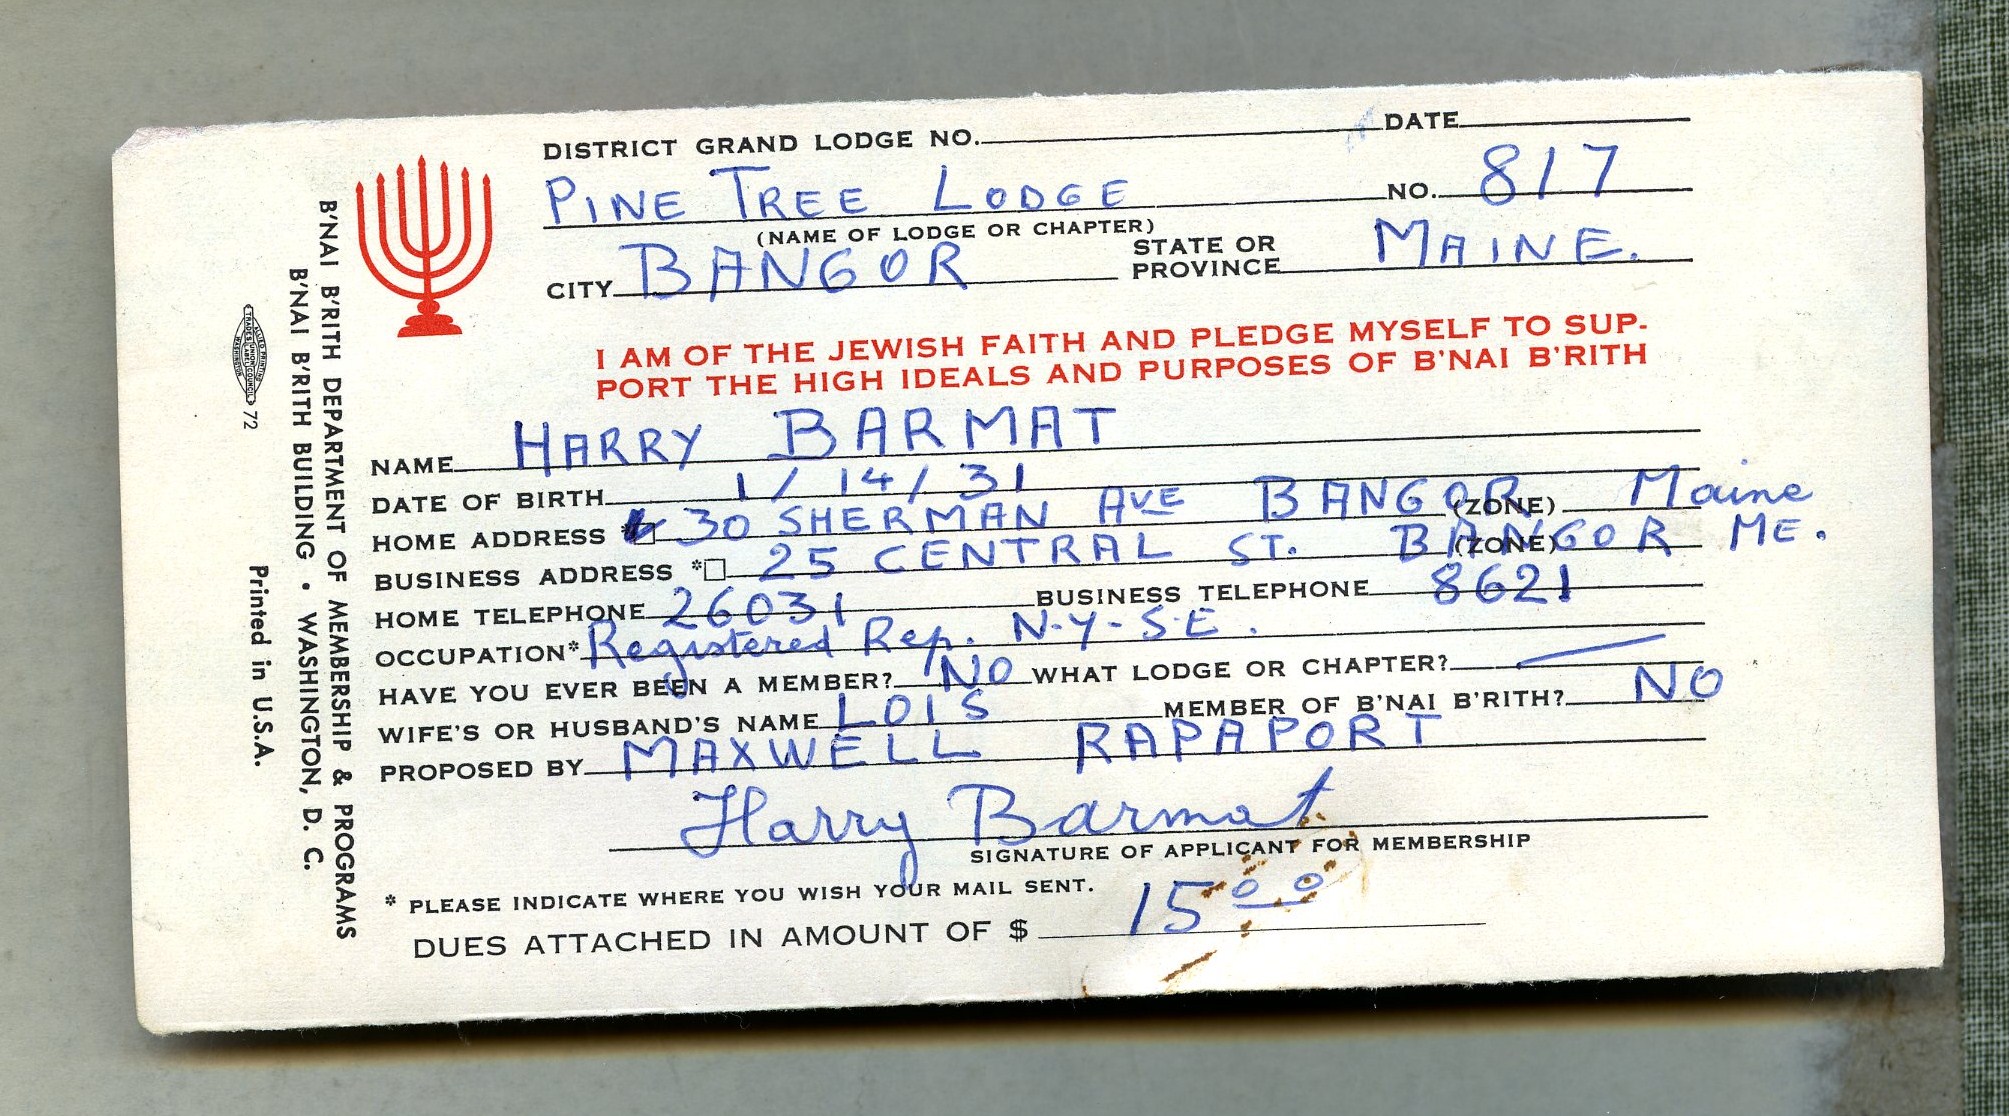 DISTRICT GRAND LODGE NO. DATE
PINE TREE LODGE NO. 817
(NAME OF LODGE OR CHAPTER)
CITY BANGOR STATE OR PROVINCE MAINE.
I AM OF THE JEWISH FAITH AND PLEDGE MYSELF TO SUP-
PORT THE HIGH IDEALS AND PURPOSES OF B'NAI B'RITH
NAME HARRY BARMAT
DATE OF BIRTH 1/14/31
HOME ADDRESS * 30 SHERMAN AVE BANGOR (ZONE) Maine
BUSINESS ADDRESS * 25 CENTRAL ST. BANGOR (ZONE) ME.
HOME TELEPHONE 26031 BUSINESS TELEPHONE 8621
OCCUPATION* Registered Rep. N-Y-S-E.
HAVE YOU EVER BEEN A MEMBER? NO WHAT LODGE OR CHAPTER? —
WIFE'S OR HUSBAND'S NAME LOIS MEMBER OF B'NAI B'RITH? NO
PROPOSED BY MAXWELL RAPAPORT
Harry Barmat
SIGNATURE OF APPLICANT FOR MEMBERSHIP
* PLEASE INDICATE WHERE YOU WISH YOUR MAIL SENT.
DUES ATTACHED IN AMOUNT OF $ 15 00
B'NAI B'RITH DEPARTMENT OF MEMBERSHIP & PROGRAMS
B'NAI B'RITH BUILDING • WASHINGTON, D. C.
ALLIED PRINTING
TRADES UNION LABEL COUNCIL
WASHINGTON
72
Printed in U.S.A.